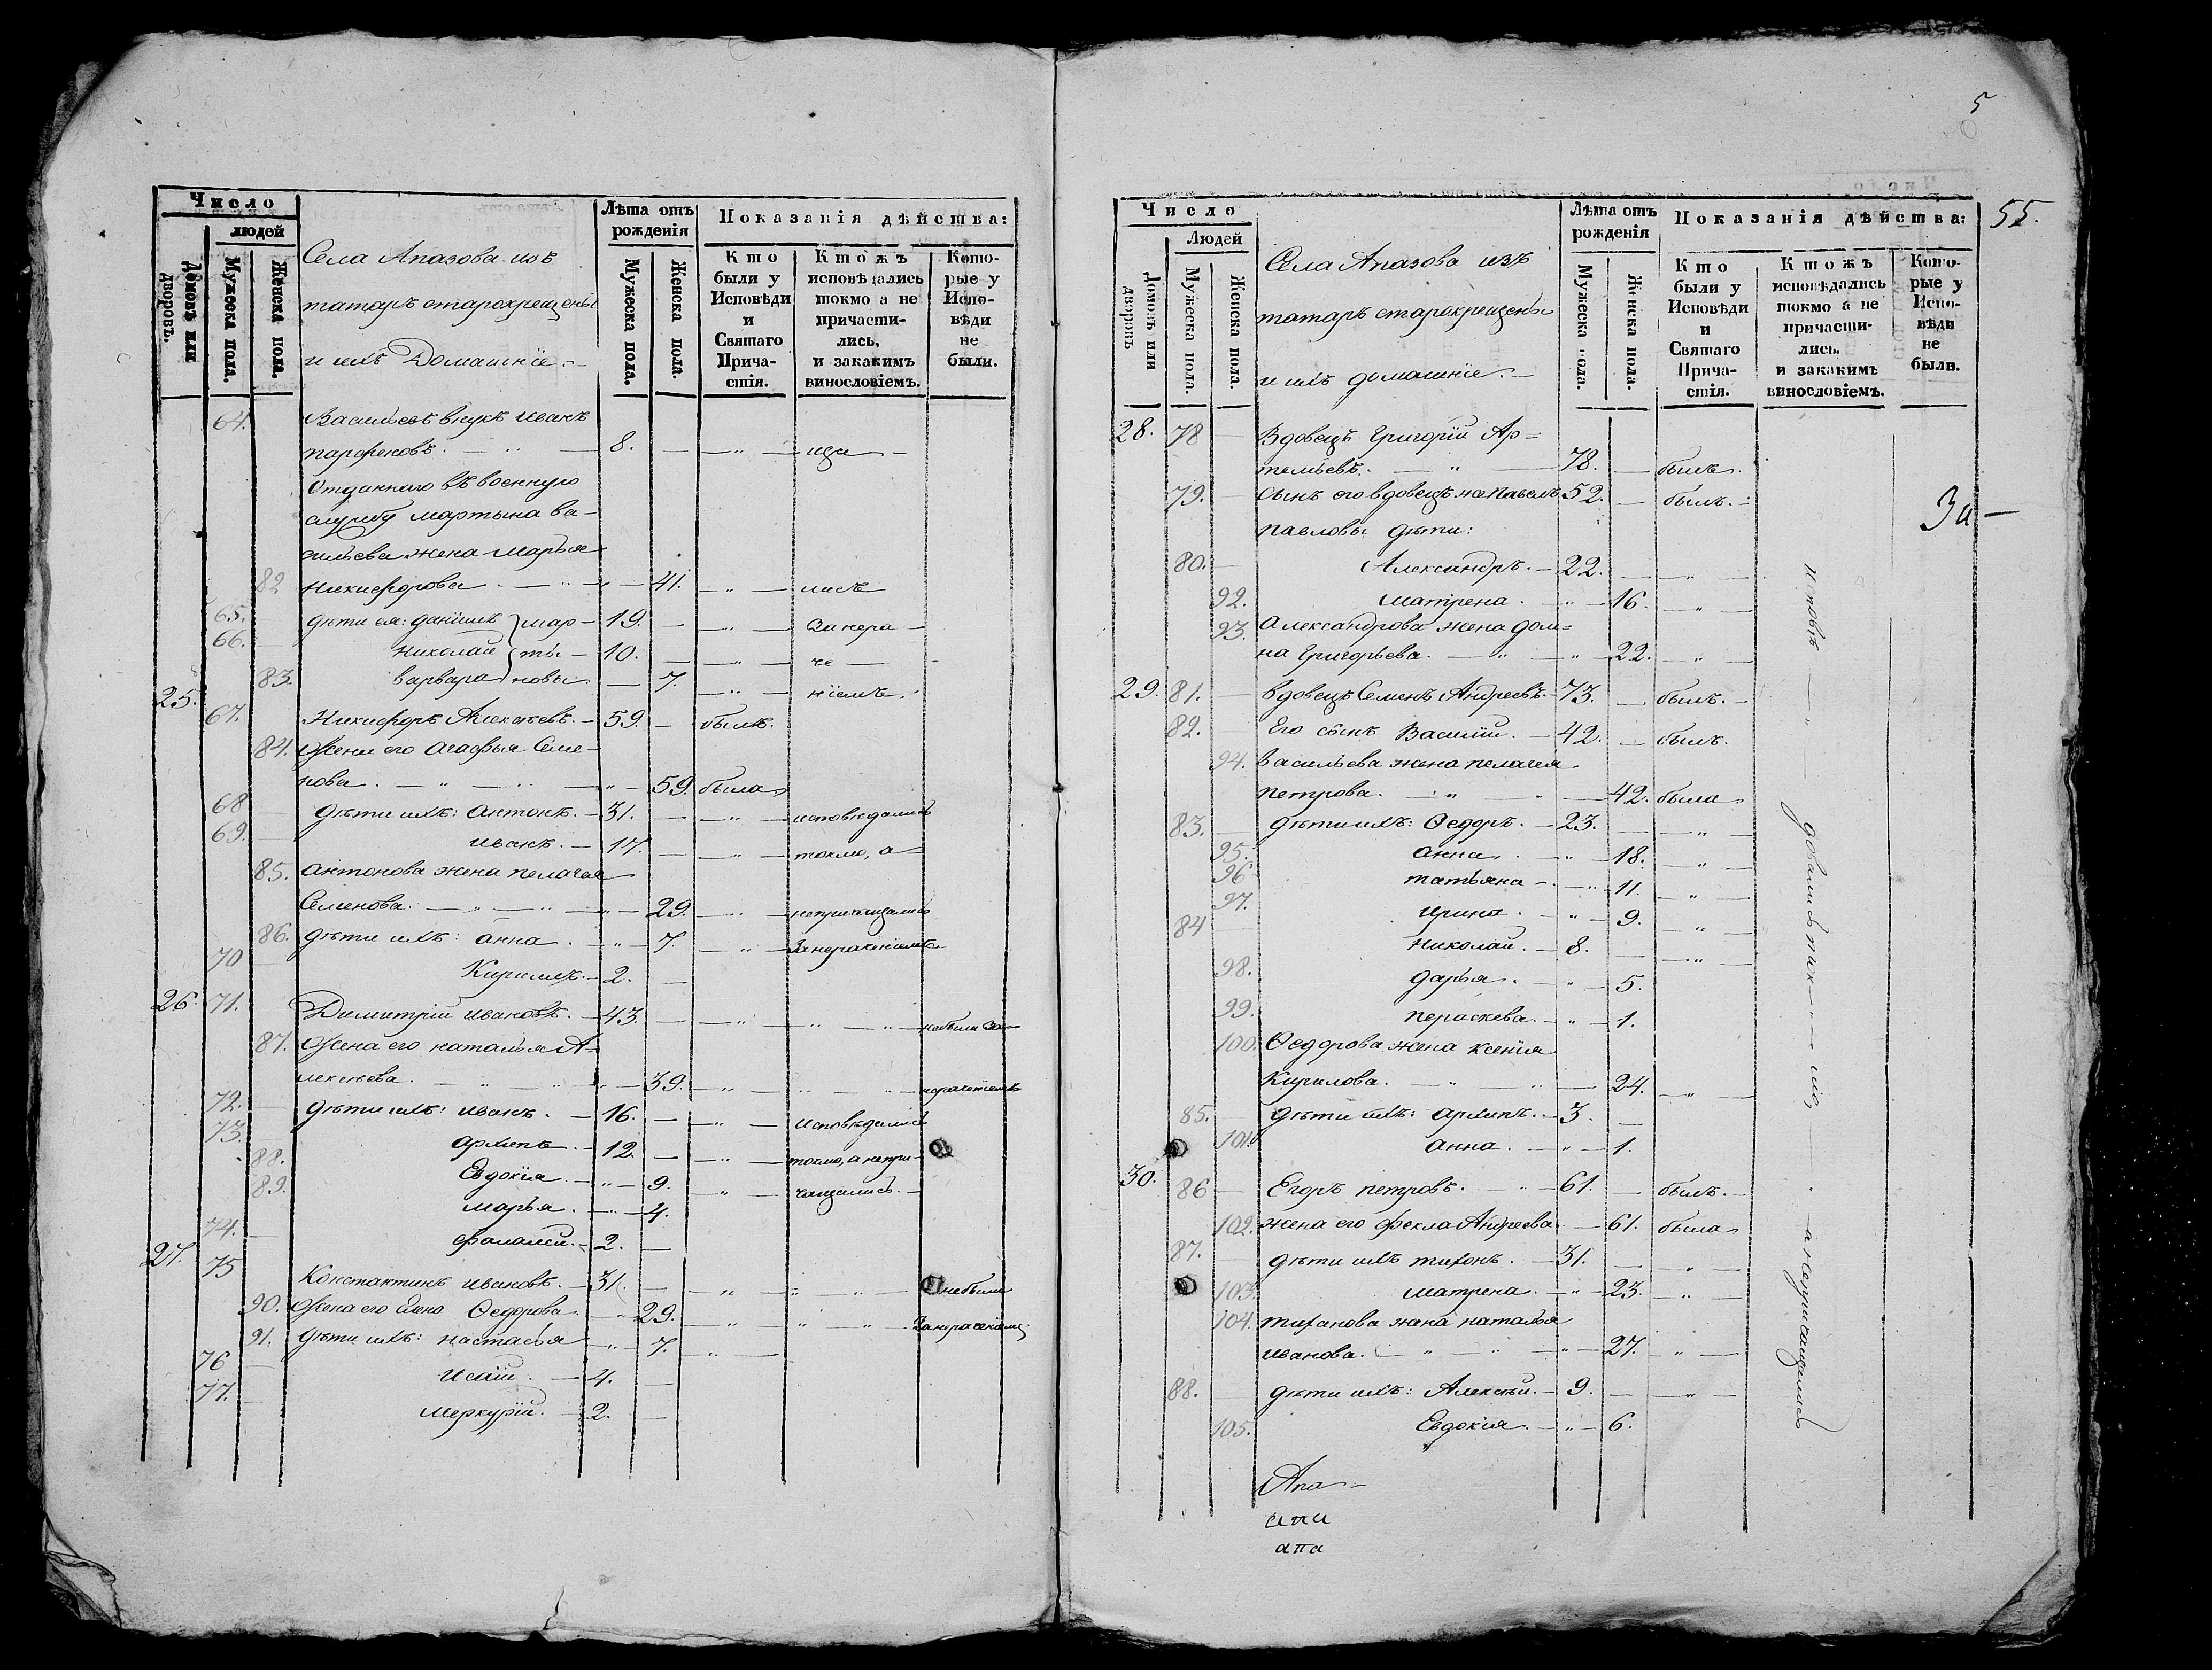 Число
людей
Домовъ или дворовъ.
Мужеска пола.
Женска пола.
Села Апазова изъ
татаръ старокрещены
и ихъ Домашнiе.
Лѣта отъ рожденiя
Мужеска пола.
Женска пола.
Показанiя дѣйства:
Кто были у Исповѣди и Святаго Прича-стiя.
Ктожъ исповѣдались токмо а не причасти-лись, и закакимъ винословiемъ.
Кото-рые у Испо-вѣди не были.
64. Васильевъ внукъ Иванъ
парфеновъ. — 8. —
Отданнаго въ военную
службу мартына ва-
сильева жена Марья
82 никифорова — 41. — лись
65. дѣти ея: данiилъ мар- 19. — За нера-
66. Николай ты- 10. — че
83. варвара новы — 7. — нiемъ.
25. 67. Никифоръ Алексѣевъ. — 59. — былъ.
84. Жена его Агафья Семе-
нова. — 59. была
68 дѣти ихъ: Антонъ. — 31. — исповѣдались
69. иванъ. — 17. — токмо, а
85. антонова жена пелагея
Семенова. — 29. — непричащались
86. дѣти ихъ: анна. — 7. — За нераченiемъ
70 Кирилъ. — 2. —
26. 71. Димитрiй ивановъ. — 43. — небыли за
87. Жена его наталья А-
лексѣева. — 39. — нераченiемъ
72. дѣти ихъ: иванъ. — 16. — исповѣдались
73. архипъ. — 12. — токмо, а непри-
88. Евдокiя. — 9. — чащались. —
89. марья. — 4.
74. фалалей. — 2. —
27. 75 Константинъ ивановъ. — 31. — небыли
90. Жена его Елена Ѳедорова. — 29. — За нераченiемъ
91. дѣти ихъ: настасья — 7. —
76 — 4. —
77. меркурiй. — 2. —
5
Число
Людей
Домовъ или дворовъ
Мужеска пола.
Женска пола.
Села Апазова изъ
татаръ старокрещены
и ихъ домашнiе. —
Лѣта отъ рожденiя
Мужеска пола.
Женска пола.
Показанiя дѣйства:
Кто были у Исповѣди и Святаго Прича-стiя.
Ктожъ исповѣдались токмо а не причасти-лись. и закакимъ винословiемъ.
Кото-рые у Испо-вѣди не были.
55.
28. 78 — Вдовецъ Григорiй Ар=
темьевъ. — 78. — былъ.
79. — Сынъ его вдовецъ же Павелъ 52. — былъ. —
павловы дѣти:
80. — Александръ. — 22. —
92. матрена. — 16. —
93. Александрова жена дом=
на Григорьева. — 22. —
29. 81. — вдовецъ Семенъ Андреевъ. — 73. — былъ. —
82. — Его сынъ Василiй. — 42. — былъ.
94. Васильева жена пелагея
петрова. — 42. была
83. — дѣти ихъ: Ѳедоръ. — 23. —
95. анна. — 18. —
96 татьяна — 11. —
97. ирина. — 9. —
84 — Николай. — 8. —
98. дарья. — 5.
99. параскева. — 1.
100. Ѳедорова жена ксенiя
Кирилова. — 24. —
85. — дѣти ихъ: архипъ. — 3. —
101. анна. — 1.
30. 86 — Егоръ петровъ. — 61. — былъ. —
102. жена его фекла Андреева. — 61. была
87. — дѣти ихъ тихонъ. — 31. —
103. матрена. — 23. —
104. тиханова жена наталья
иванова. — 27. —
88. — дѣти ихъ: Алексѣй. — 9. —
105. Евдокiя. — 6.
а непричащались
Апа-
апа
апа